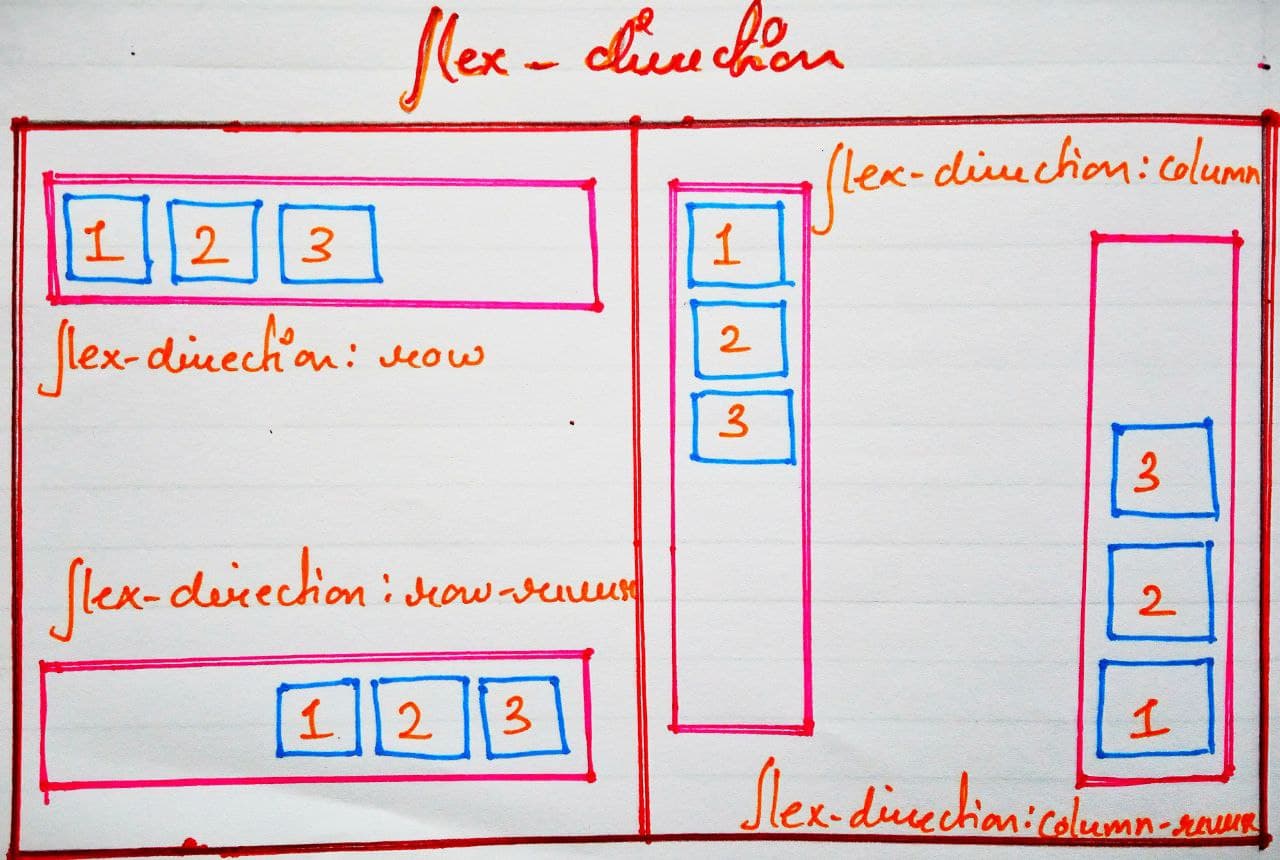 flex-direction
1 2 3
flex-direction: row
flex-direction: row-reverse
1 2 3
flex-direction: column
1
2
3
3
2
1
flex-direction: column-reverse